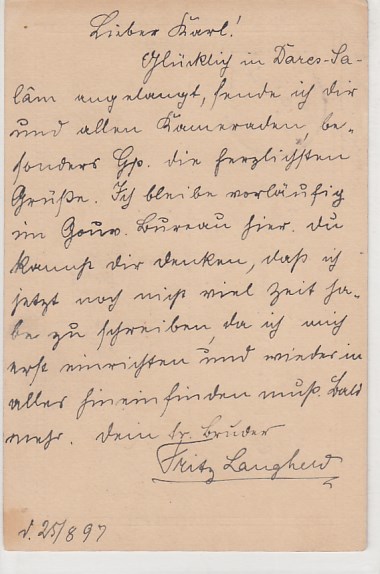 Lieber Karl!
Glücklich in Dares-Sa-
lâm angelangt, sende ich dir
und allen Kameraden, be-
sonders Gp. die herzlichsten
Grüße. Ich bleibe vorläufig
im Gouv. Bureau hier. Du
kannst dir denken, daß ich
jetzt noch nicht viel Zeit ha-
be zu schreiben, da ich mich
erst einrichten und wieder in
alles hineinfinden muß. Bald
mehr. Dein tr. Bruder
Fritz Langheld
d. 25/8 97